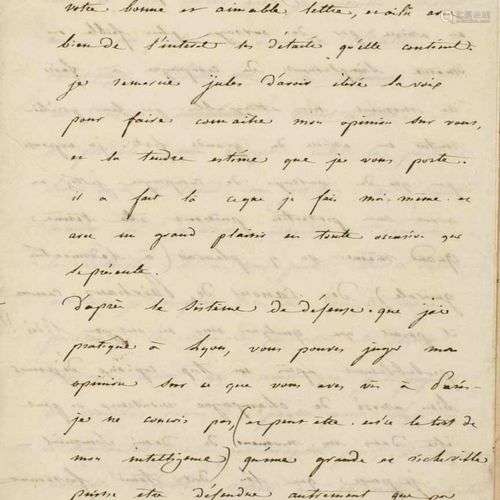 votre bonne et aimable lettre, et ai lu avec
bien de l'intérêt les détails qu'elle contient
je remercie jules d'avoir élevé la voix
pour faire connaitre mon opinion sur vous,
et la tendre estime que je vous porte.
il a fait la ce que je fais moi-meme et
avec un grand plaisir en toute occasion qui
se présente.
D'après le Sistème de défense que j'ai
pratiqué à Lyon, vous pouvez juger mon
opinion sur ce que vous avez vu à Paris
je ne concois pas (et peut etre est-ce le tort de
mon intelligence) qu'une grande et riche ville
puisse etre défendue autrement que par